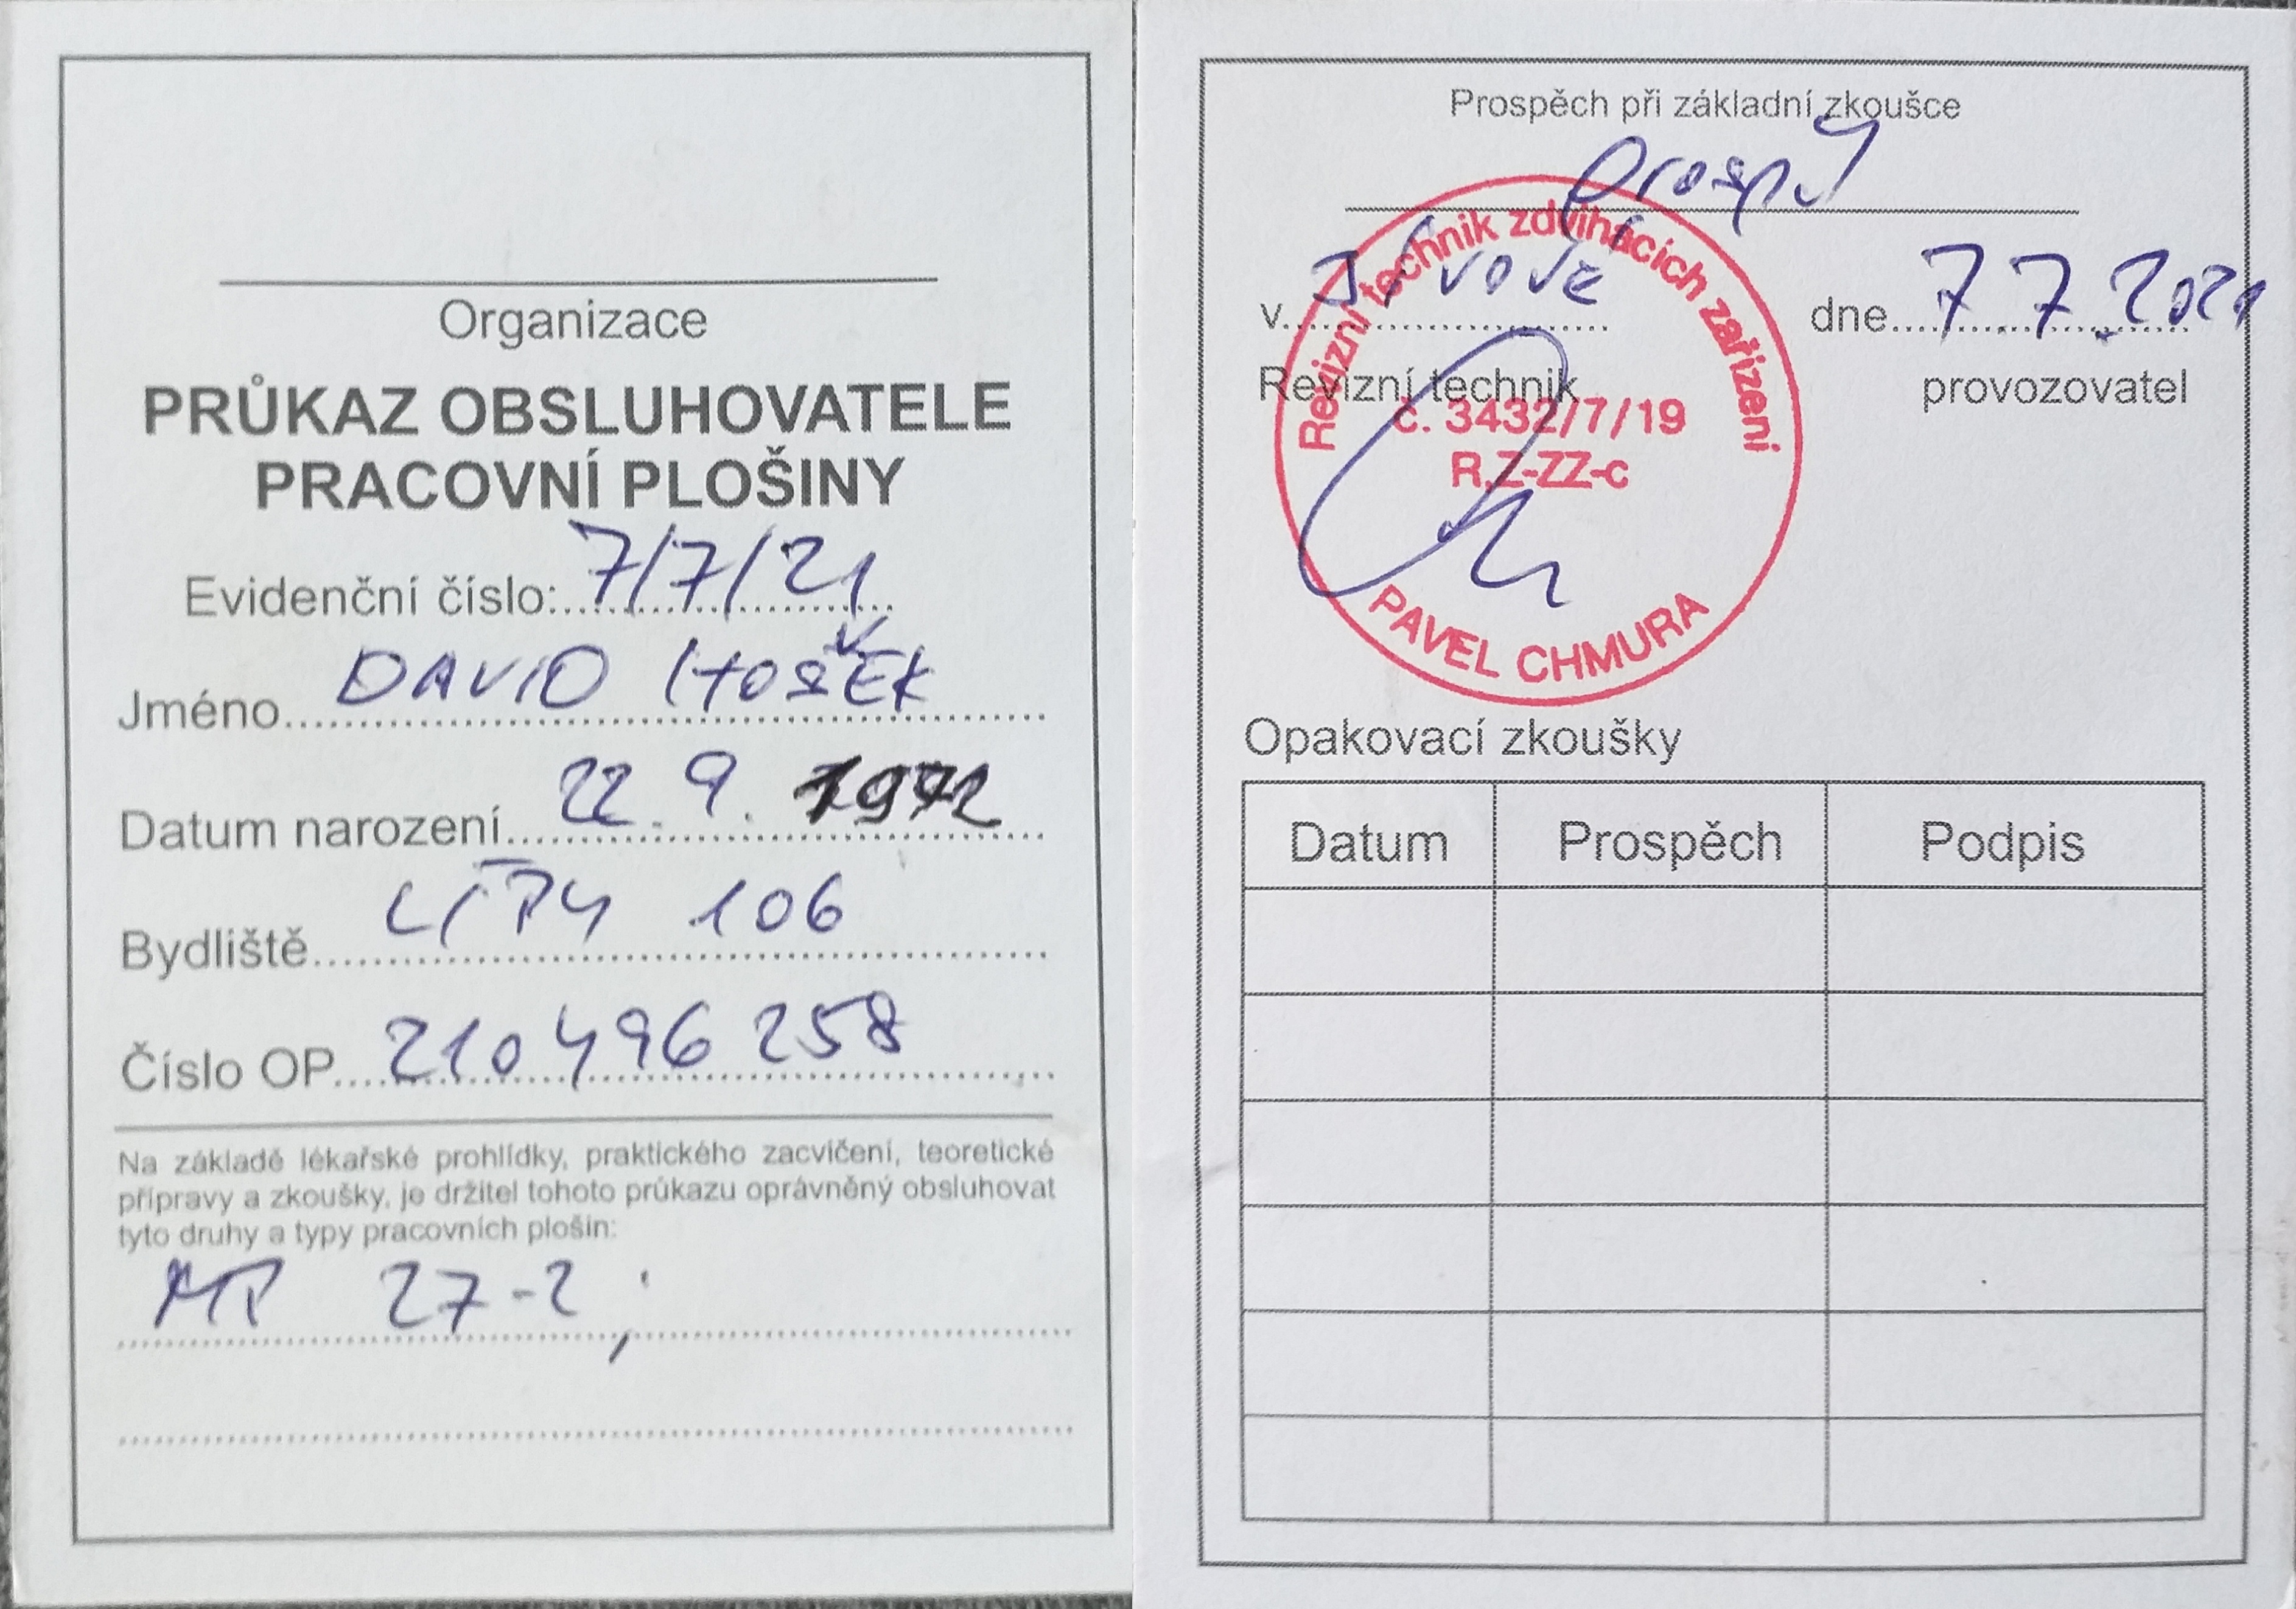 Organizace
PRŮKAZ OBSLUHOVATELE
PRACOVNÍ PLOŠINY
Evidenční číslo: 7/7/21
Jméno DAVID HOŠEK
Datum narození 22. 9. 1972
Bydliště LÍPY 106
Číslo OP 210496258
Na základě lékařské prohlídky, praktického zacvičení, teoretické
přípravy a zkoušky, je držitel tohoto průkazu oprávněný obsluhovat
tyto druhy a typy pracovních plošin:
MP 27-2,
Prospěch při základní zkoušce
prospěl
v dne 7.7.2021
Revizní technik provozovatel
Revizní technik zdvihacích zařízení
č. 3432/7/19
R,Z-ZZ-c
PAVEL CHMURA
Opakovací zkoušky
Datum Prospěch Podpis